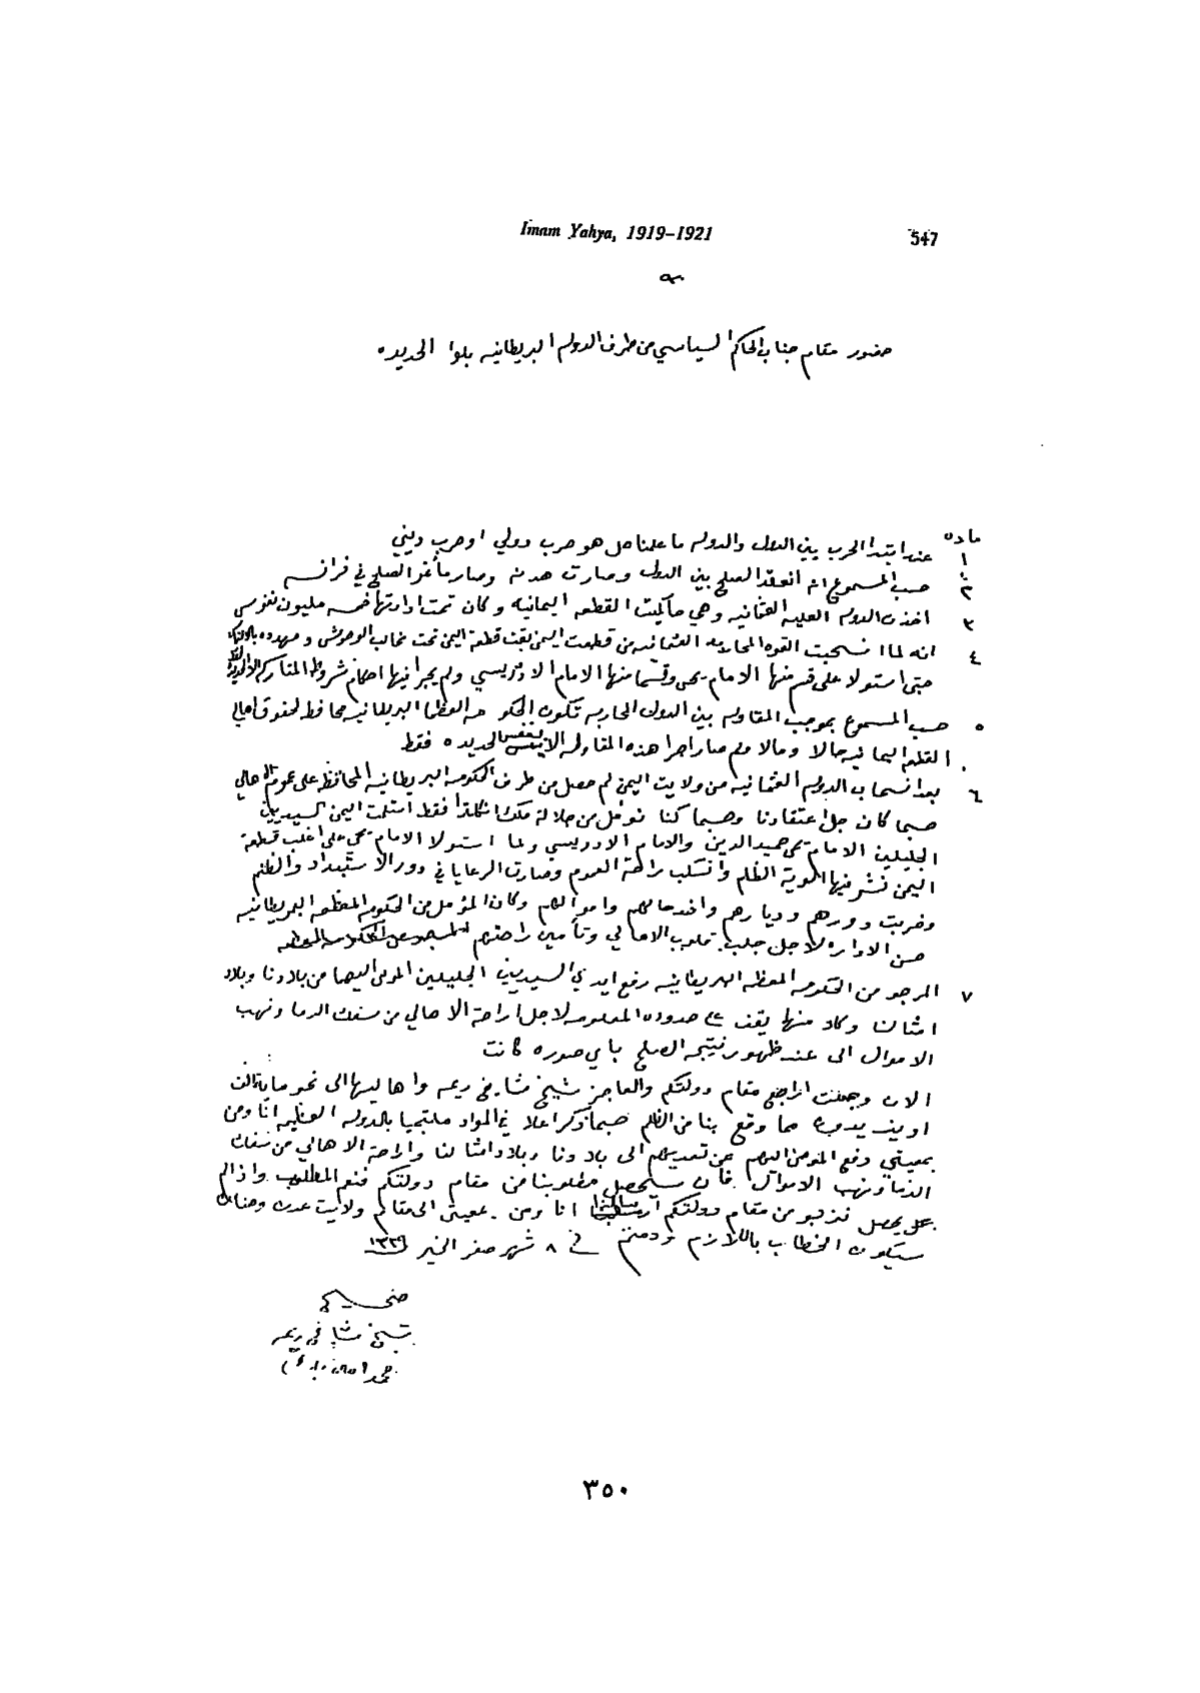 Imam Yahya, 1919–1921
547
حضور مقام جناب الحاكم السياسي من طرف الدوله البريطانيه بلوا الحديده
ماده
١ عند ابتدا الحرب بين الدول والدوله ما علمنا هل هو حرب دولي او حرب ديني
٢ حسب المسموع انه انعقد الصلح بين الدول وصارت هدنه وصار مأتمر الصلح في فرانسه
٣ اخذت الدوله العليه العثمانيه وهي حاكمت القطعه اليمانيه وكان تحت ادارتها خمسه مليون نفوس
٤ انه لما انسحبت القوه المحاربه العثمانيه من قطعت اليمن بقت قطعة اليمن تحت مخالب الوحوش و مهدوده
حتى استولا على قسم منها الامام يحيى وقسما منها الامام الادريسي ولم يجرا فيها احكام شروط المتاركه
٥ حسب المسموع بموجب المقاوله بين الدول المحاربه تكون الحكومه العظما البريطانيه محافظه لحقوق اهالي
القطعه اليمانيه حالا ومالا ولم صار اجرا هذه المقاوله الا بنفس الحديده فقط
٦ بعد انسحاب الدوله العثمانيه من ولايت اليمن لم حصل من طرف الحكومه البريطانيه المحافظه على عموم الاهالي
حسبما كان جل اعتقادنا وحسبما كنا نؤمل من جلالة ملك انكلترا فقط استلمت اليمن السيدين
الجليلين الامام يحيى حميد الدين والامام الادريسي ولما استولا الامام يحيى على اغلب قطعة
اليمن نشر فيها الوية الظلم وانسلب راحة العموم وصارت الرعايا في دور الاستبداد والظلم
وخربت دورهم وديارهم واخذ حالهم واموالهم وكان المؤمل من الحكومه المعظمه البريطانيه
حسن الاداره لاجل جلب قلوب الاهالي وتأمين راحتهم
٧ المرجو من الحكومه المعظمه البريطانيه رفع ايدي السيدين الجليلين المومى اليهما من بلادنا وبلاد
امثالنا وكلا منها يقف على حدوده المعلومه لاجل اراحة الاهالي من سفك الدما ونهب
الاموال الى عند ظهور نتيجه الصلح باي صوره كانت
الان وجعلت اراجع مقام دولتكم والعاجز شيخ مشايخ ريمه واهاليها الى نحو ماية الف
اويزيدون مما وقع بنا من الظلم حسبما ذكر اعلا في المواد ملتجيا بالدوله العظيمه انا ومن
بمعيتي رفع المومى اليهم عن تعديهم الى بلادنا وبلاد امثالنا واراحة الاهالي من سفك
الدما ونهب الاموال فان سيحصل مطلوبنا من مقام دولتكم فنعم المطلوب واذا لم
يحصل نرجو من مقام دولتكم ارسالنا انا ومن بمعيتي الى مقام ولايت عدن وهناك
سيكون الخطاب باللازم ودمتم في ٨ شهر صفر الخير ١٣٣٩
شيخ مشايخ ريمه
محمد امين
٣٥٠